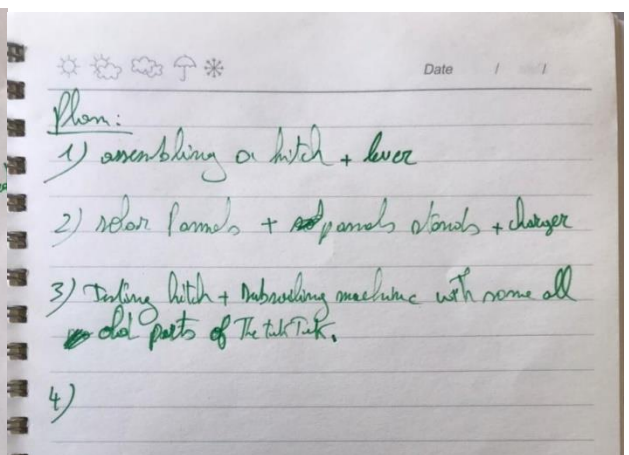 Date / /
Plan:
1) assembling a hitch + lever
2) solar Pannels + panels stands + charger
3) Testing hitch + Subsoiling machine with some all
old parts of The tuk Tuk.
4)